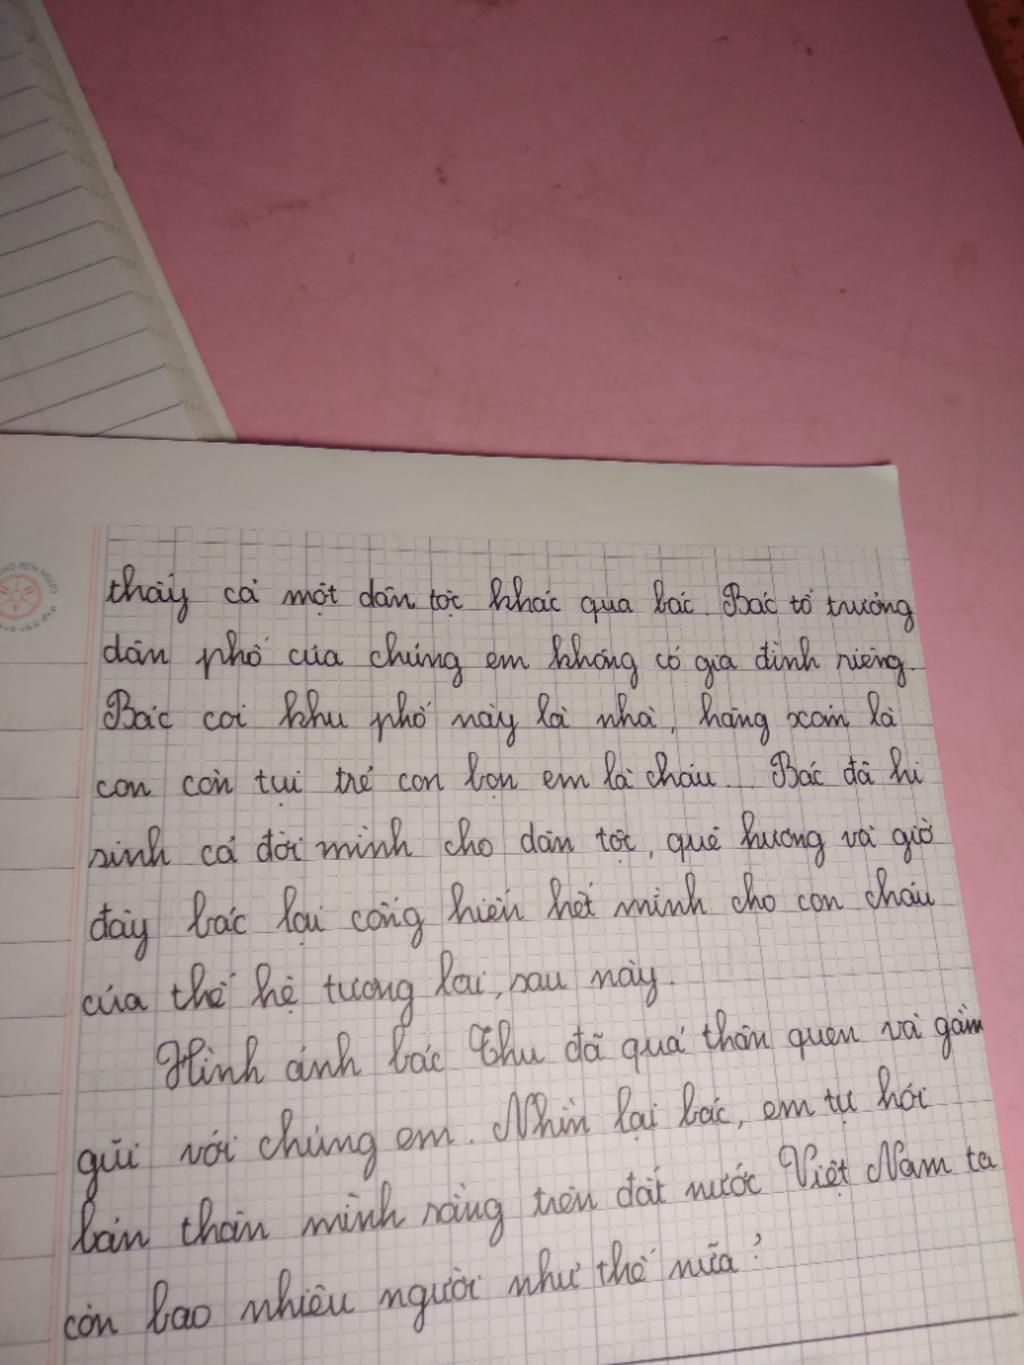 thấy cả một dân tộc khác qua bác. Bác tổ trưởng
dân phố của chúng em không có gia đình riêng.
Bác coi khu phố này là nhà, hàng xóm là
con còn tụi trẻ con bọn em là cháu... Bác đã hi
sinh cả đời mình cho dân tộc, quê hương và giờ
đây bác lại cống hiến hết mình cho con cháu
của thế hệ tương lai, sau này.
Hình ảnh bác Thu đã quá thân quen và gần
gũi với chúng em. Nhìn lại bác, em tự hỏi
bản thân mình rằng trên đất nước Việt Nam ta
còn bao nhiêu người như thế nữa?